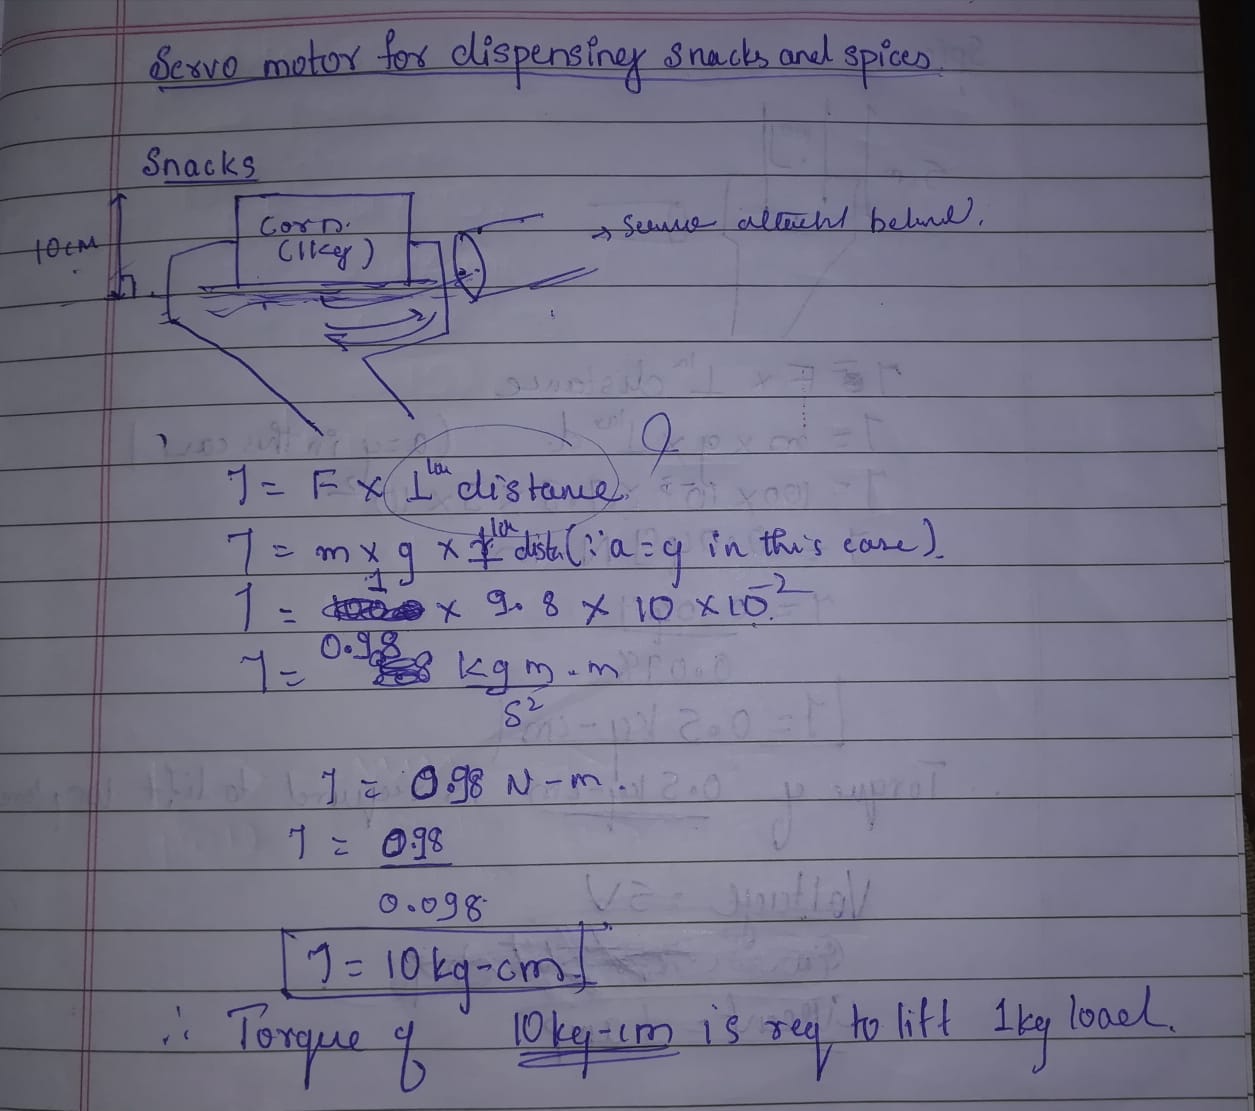 Servo motor for dispensing snacks and spices.
Snacks
10cm
Corn.
(1kg)
→ behind.
T = F × ⊥lar distance.
T = m × g × ⊥lar dist. (∵ a = g in this case).
T = 1 × 9.8 × 10 × 10^-2
T = 0.98 kg m . m
s²
T = 0.98 N-m.
T = 0.98
0.098
T = 10 kg-cm.
∴ Torque of 10kg-cm is req to lift 1kg load.